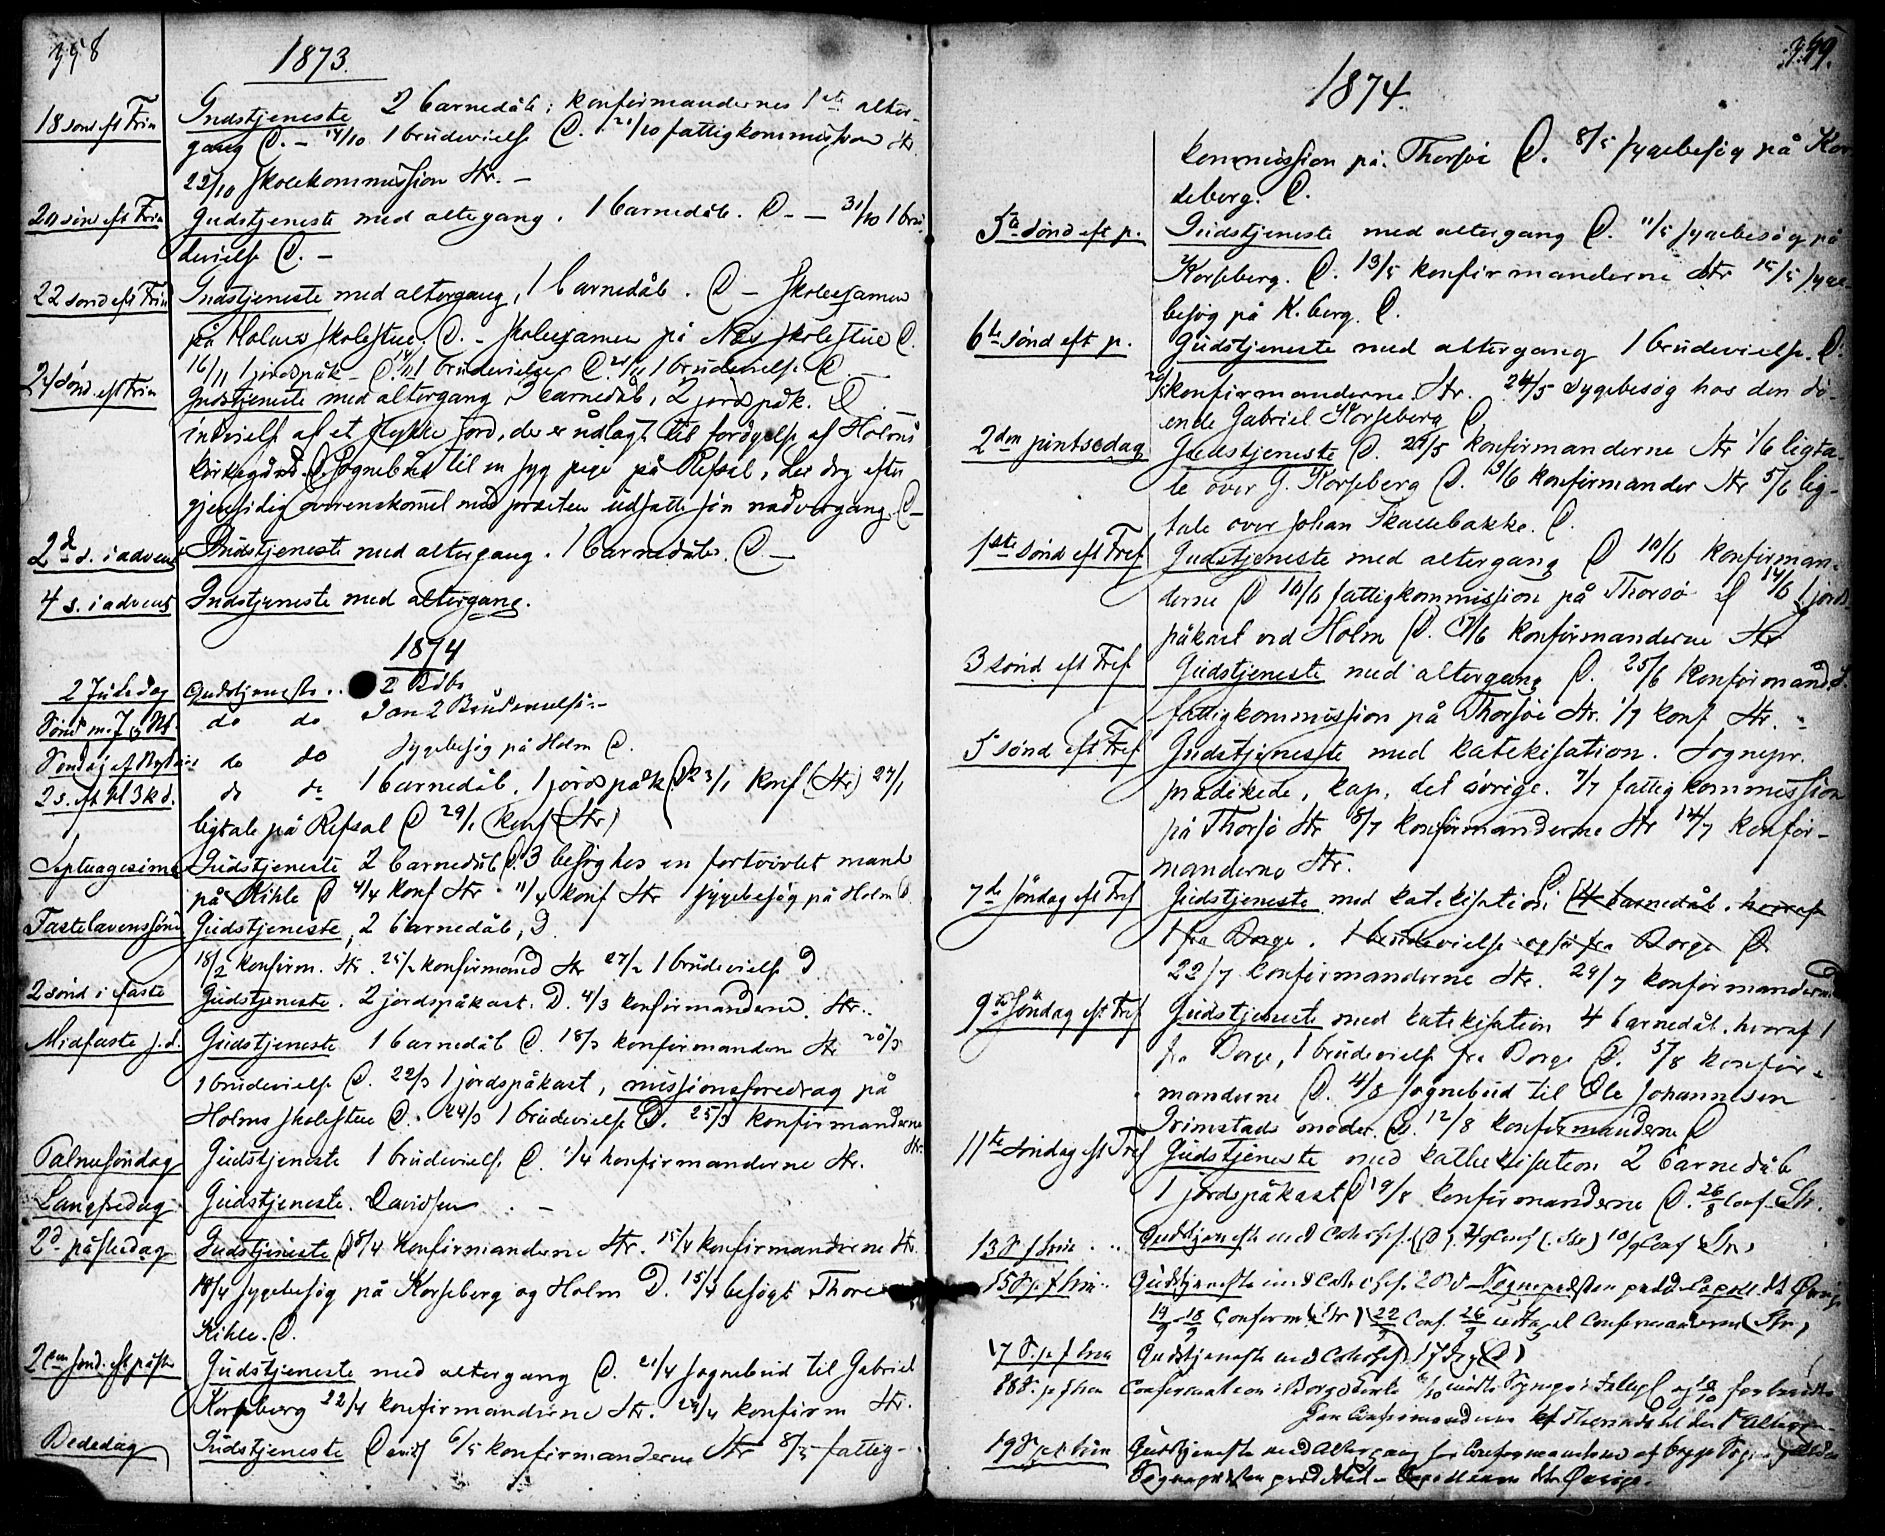 358
1873.
18 sønd eft Trin Gudstjeneste 2 barnedåb; konfirmandernes 1ste alter-
gang D. - 14/10 1 brudevielse D. 21/10 fattigkommission Str
22/10 skolekommission Str. -
20 sønd eft Trin Gudstjeneste med altergang. 1 barnedåb. D. - 31/10 1 bru
devielse D. -
22 sønd eft Trin Gudstjeneste med altergang, 1 barnedåb. D - skoleexamen
på Holms skolestue. D. - skoleexamen på Næs skolestue D.
16/11 1 jordspåk - D. 1 brudevielse D. 1 brudevielse D. -
24 sønd. eft Trin Gudstjeneste med altergang, 3 barnedåb, 2 jordspåk. D -
indvielse af et stykke jord, der er udlagt til forøgelse af Holms
kirkegård D Sognebud til en syg pige på Refsal, der dog efter
gjensidig overenskomst med præsten udsatte sin nadvergang. D -
2d s. i advent Gudstjeneste med altergang. 1 barnedåb. D. -
4 s. i advent Gudstjeneste med altergang.
1874
2 Juledag Gudstjeneste .. 2 Dåb
Sønd m. J & Nt do do Jan 2 Brudevielse -
Søndag ef Nytår do do Sygebesøg på Holm D.
2 s. eft H 3 k d. do do 1 barnedåb, 1 jordspåk D 23/1 konf (Str) 27/1
ligtale på Refsal D 29/1 konf (Str)
Septuagesima Gudstjeneste 2 barnedåb D. 3 besøg hos en fortvivlet mand
på Kihle D 4/4 konf Str. 11/4 konf Str sygebesøg på Holm D.
Fastelavenssønd Gudstjeneste, 2 barnedåb, D
18/2 konfirm. Str. 25/2 konfirmand Str 27/2 1 brudevielse D
2 sønd i faste Gudstjeneste. 2 jordspåkast. D. 4/3 konfirmanderne. Str.
Midfaste s.d. Gudstjeneste 1 barnedåb D. 18/3 konfirmanderne Str 20/3
1 brudevielse D. 22/3 1 jordspåkast, missionsforedrag på
Holms skolestue D. 24/3 1 brudevielse D. 25/3 konfirmanderne
Str.
Palmesøndag Gudstjeneste 1 brudevielse D. 1/4 konfirmanderne Str.
Langfredag Gudstjeneste. Davidsen -
2d påskedag Gudstjeneste D 8/4 konfirmanderne Str. 15/4 konfirmanderne Str.
14/4 sygebesøg på Korseberg og Holm D. 15/4 besøgt Thore
Kihle. D.
2den sønd. eft påske Gudstjeneste med altergang D. 21/4 sognebud til Gabriel
Korseberg 22/4 konfirmanderne Str. 29/4 konfirm Str.
Bededag Gudstjeneste Davids 6/5 konfirmanderne Str 8/5 fattig-
359.
1874.
kommission på Thorsø D. 8/5 sygebesøg på Kor
seberg. D.
5te sønd eft p. Gudstjeneste med altergang D. 11/5 sygebesøg på
Korseberg. D. 13/5 konfirmanderne Str 15/5 syge-
besøg på K.berg. D.
6te sønd eft p. Gudstjeneste med altergang 1 brudevielse. D.
20/5 konfirmanderne Str. 24/5 sygebesøg hos den dø-
ende Gabriel Korseberg D
2den pintsedag Gudstjeneste D. 29/5 konfirmanderne Str 1/6 ligta-
le over G. Korseberg D. 3/6 konfirmander Str 5/6 lig-
tale over Johan Skallebakke. D.
1ste sønd eft Tref Gudstjeneste med altergang D 10/6 konfirman-
derne D 10/6 fattigkommission på Thorsø D 14/6 1 jords
påkast ved Holm D. 17/6 konfirmanderne Str
3 sønd eft Tref Gudstjeneste med altergang D. 25/6 konfirmand S.
fattigkommission på Thorsøe Str. 1/7 konf Str. -
5 sønd eft Tref Gudstjeneste med katekisation. Sognepr.
prædikede, kap. det øvrige. 7/7 fattigkommission
på Thorsø Str 8/7 konfirmanderne Str 14/7 konfir-
manderne Str.
7de Søndag eft Tref Gudstjeneste med katekisation; D (4 barnedåb. hvoraf
1 fra Borge. 1 brudevielse også fra Borge D
22/7 konfirmanderne Str. 29/7 konfirmanderne D
9de Søndag eft Tref Gudstjeneste med katekisation 4 barnedåb. hvoraf 1
fr Borge, 1 brudevielse fra Borge D. 5/8 konfir-
manderne D. 4/8 sognebud til Ole Johannesen
Grimstads moder. D. 12/8 konfirmanderne D
11te søndag eft Tref Gudstjeneste med kathekisation 2 barnedåb
1 jordspåkast D 19/8 konfirmanderne D. 26/8 Conf. Str.
13 S f trin .. Gudstjeneste med Catechis. (D). 2/9 Conf (Str) 10/9 Conf Str)
15 S p f trin. Gudstjeneste med Catechis. 2 Dd Sognepræsten præd. Capell. dt Øvrige
14/9 18/9 Conferm (Str) 22/9 Conf. 26/9 Confirmanderne (Str)
17 S. p f trin Gudstjeneste med Catechis. (D)
18 S. p f trin Confirmation i Borge Kirke
19 S p f trin Gudstjeneste med Altergang for Confirmanderne af begge Sogne
Sognepræsten prædikede - Capellanen det Øvrige.